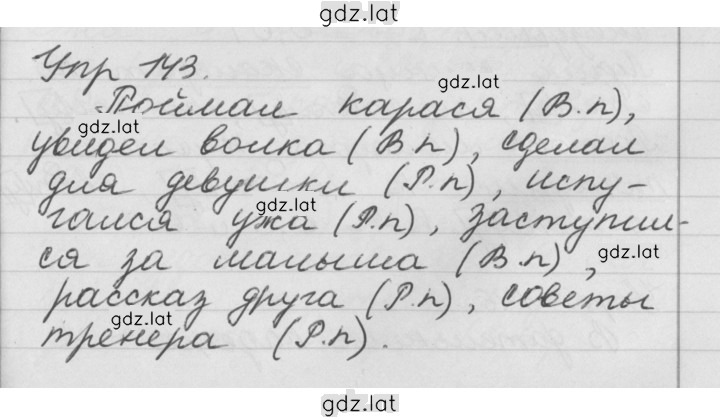 gdz.lat
Упр 143.
gdz.lat
Поймал карася (В.п),
gdz.lat
увидел волка (В п), сделал
для девушки (Р.п), испу-
gdz.lat
гался ужа (Р.п), заступил-
ся за малыша (В.п),
gdz.lat
рассказ друга (Р.п), советы
gdz.lat
тренера (Р.п).
gdz.lat